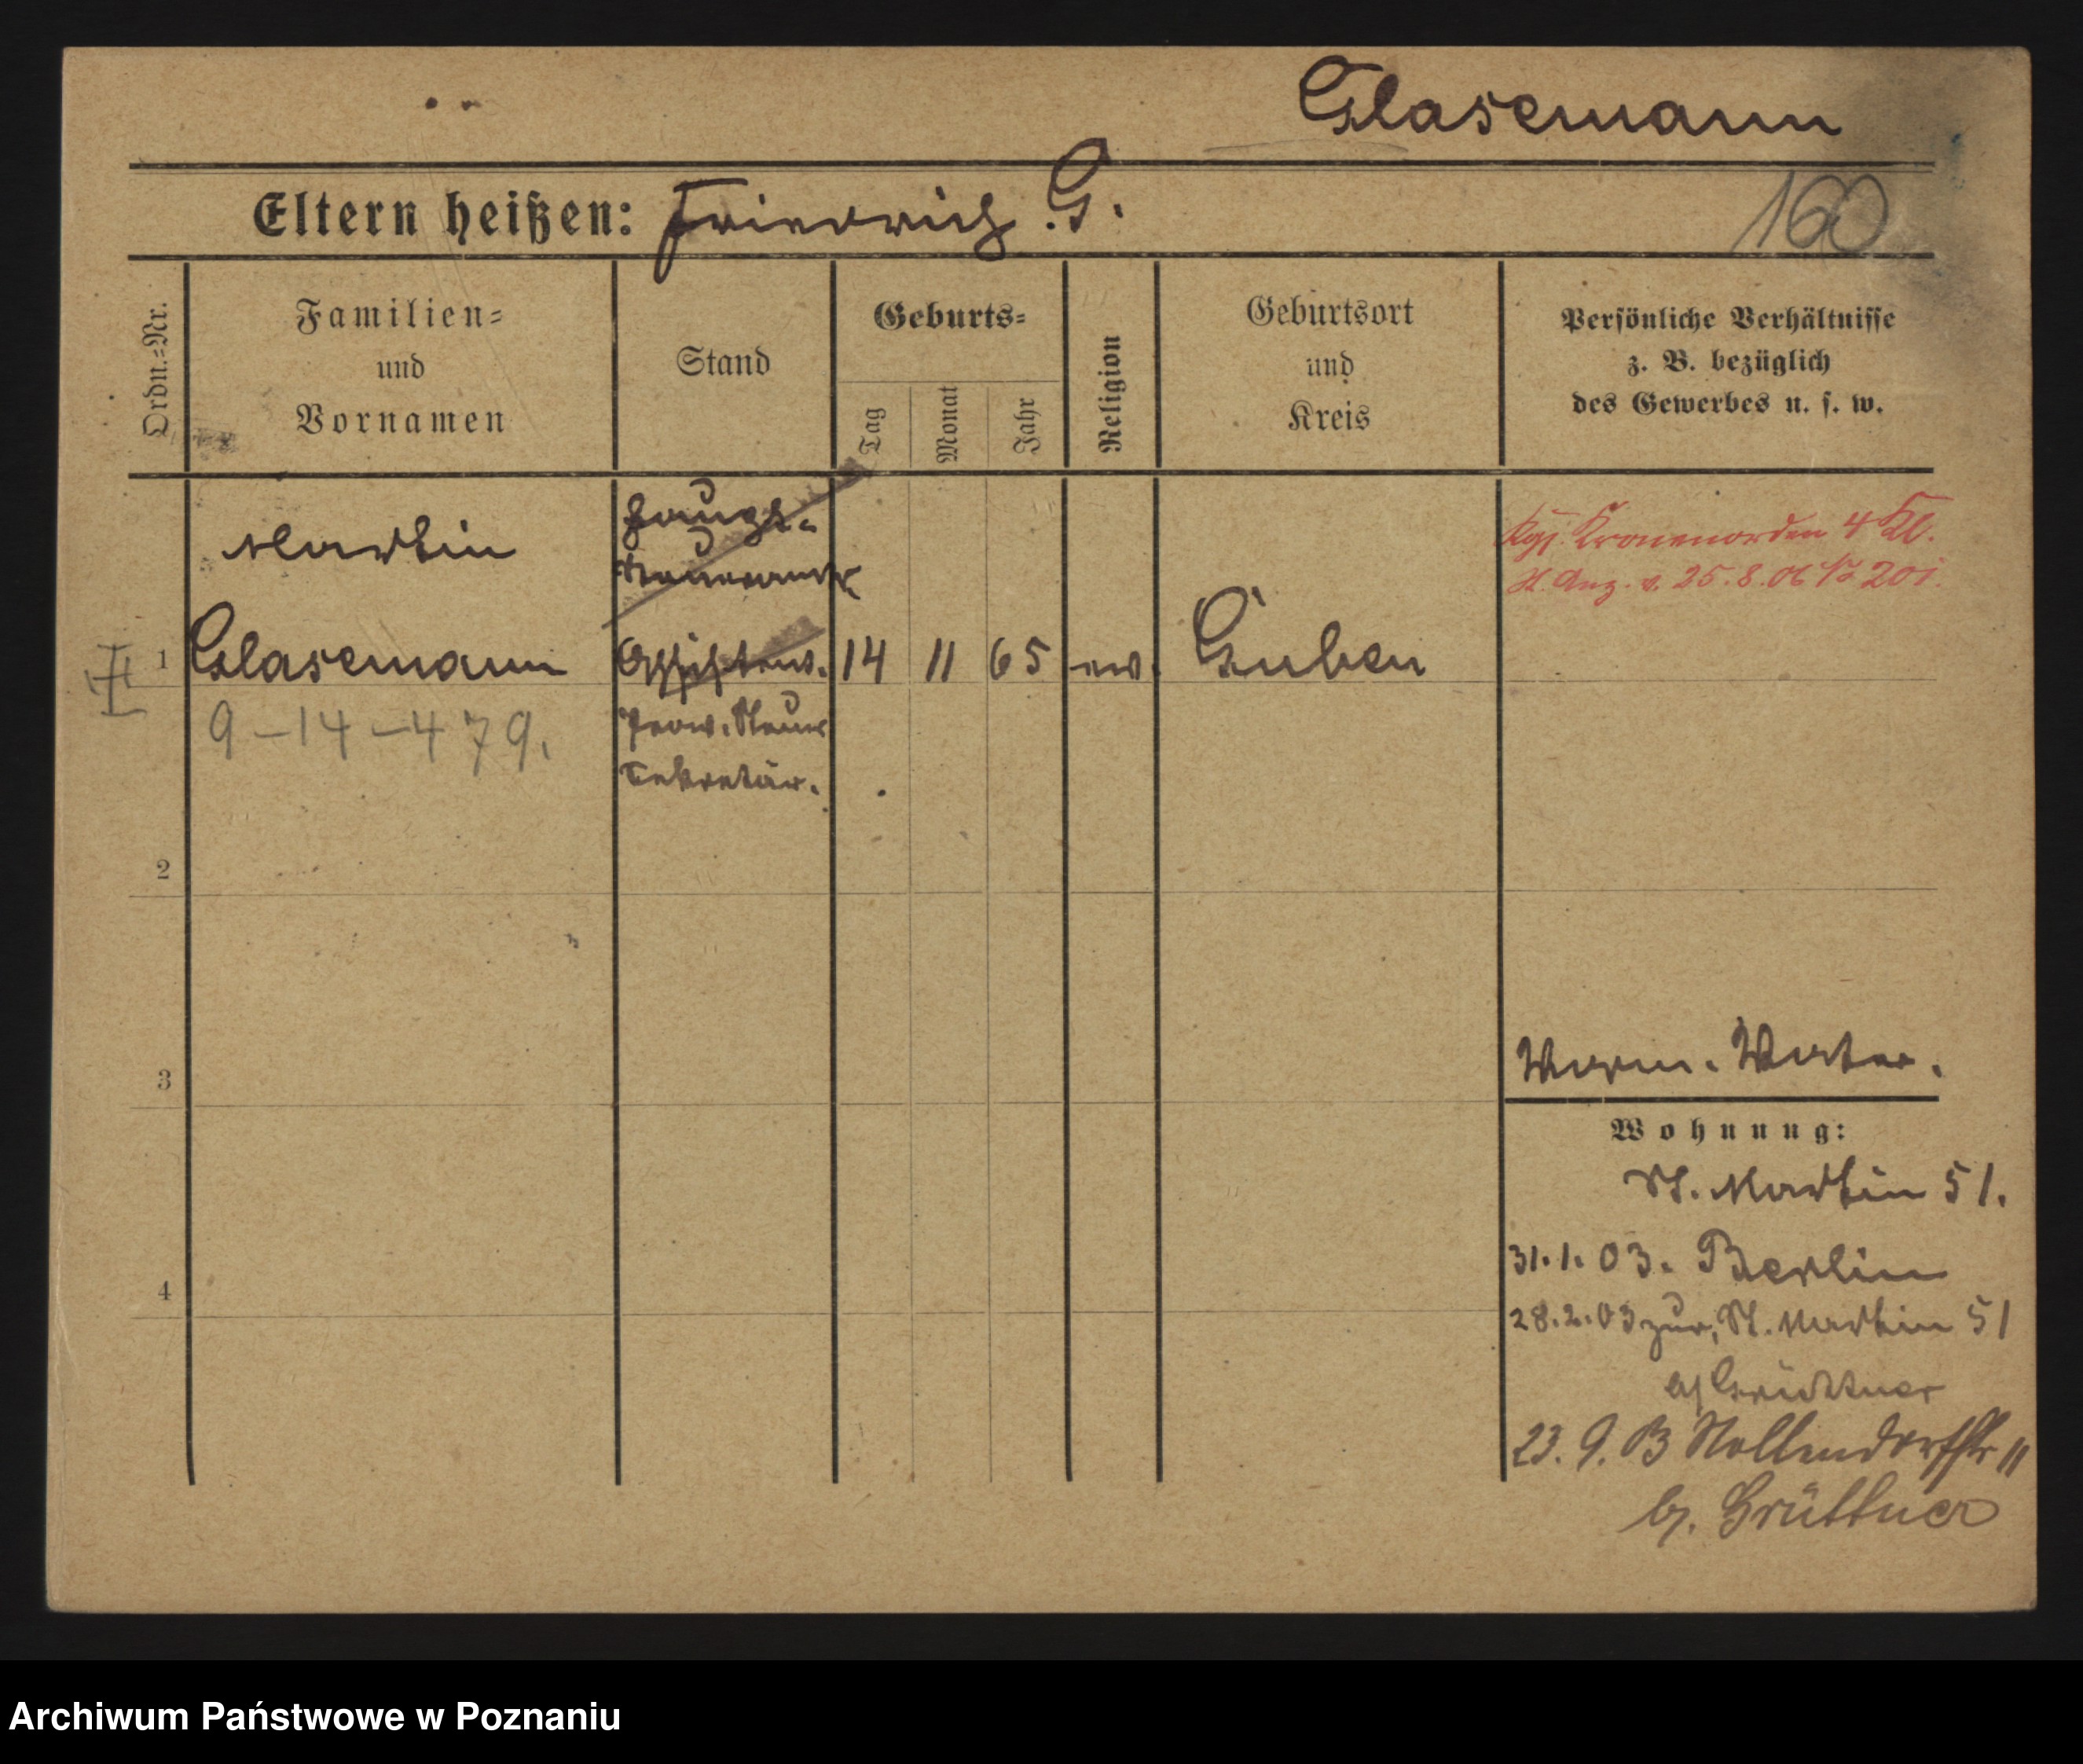 Glasemann
Eltern heißen: Friedrich G.
160
Ordn.=Nr.
Familien=
und
Vornamen
Stand
Geburts=
Tag
Monat
Jahr
Religion
Geburtsort
und
Kreis
Persönliche Verhältnisse
z. B. bezüglich
des Gewerbes u. s. w.
Kgl. Kronenorden 4 Kl.
St. Anz. v. 25.8.06 № 201.
Martin
Haupt-
Steueramts
1 Glasemann Assistent. 14 11 65 ev. Guben
9-14-479.
Prov. Steuer
Sekretär.
2
3
Wohnung:
St. Martin 51.
31.1.03. Berlin
4
28.2.03 zur, St. Martin 51
b/ Grüttner
23.9.03 Nollendorfstr 11
b/. Grüttner
Archiwum Państwowe w Poznaniu